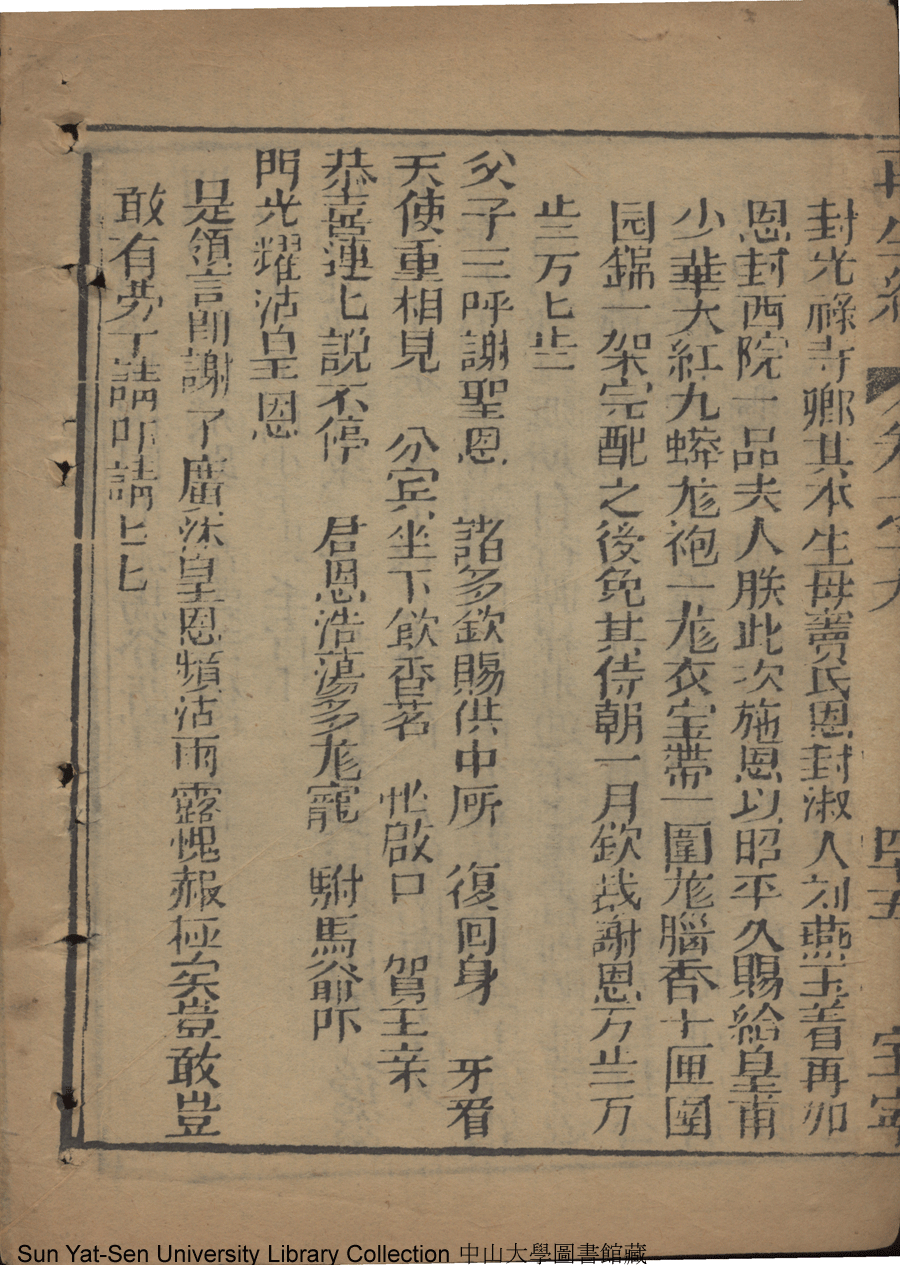 再生緣 卷之十九 四十五 宝寧
封光祿寺卿其本生母竇氏恩封淑人刘燕玉着再加
恩封西院一品夫人朕此次施恩以昭平久賜給皇甫
少華大紅九蟒尨袍一尨衣宝帶一圍尨腦香十匣团
园錦一架完配之後免其侍朝一月欽哉謝恩万歲万
歲万匕歲
父子三呼謝聖恩 諸多欽賜供中所 復回身 牙看
天使重相見 分宾坐下飲香茗 忙啟口 駕王亲
恭喜連匕説不停 君恩浩蕩多尨寵 駙馬爺吓
門光耀沾皇恩
是領言即謝了廣沐皇恩頻沾雨露愧赧極矣豈敢豈
敢有劳了請吓請匕匕
Sun Yat-Sen University Library Collection 中山大學圖書館藏